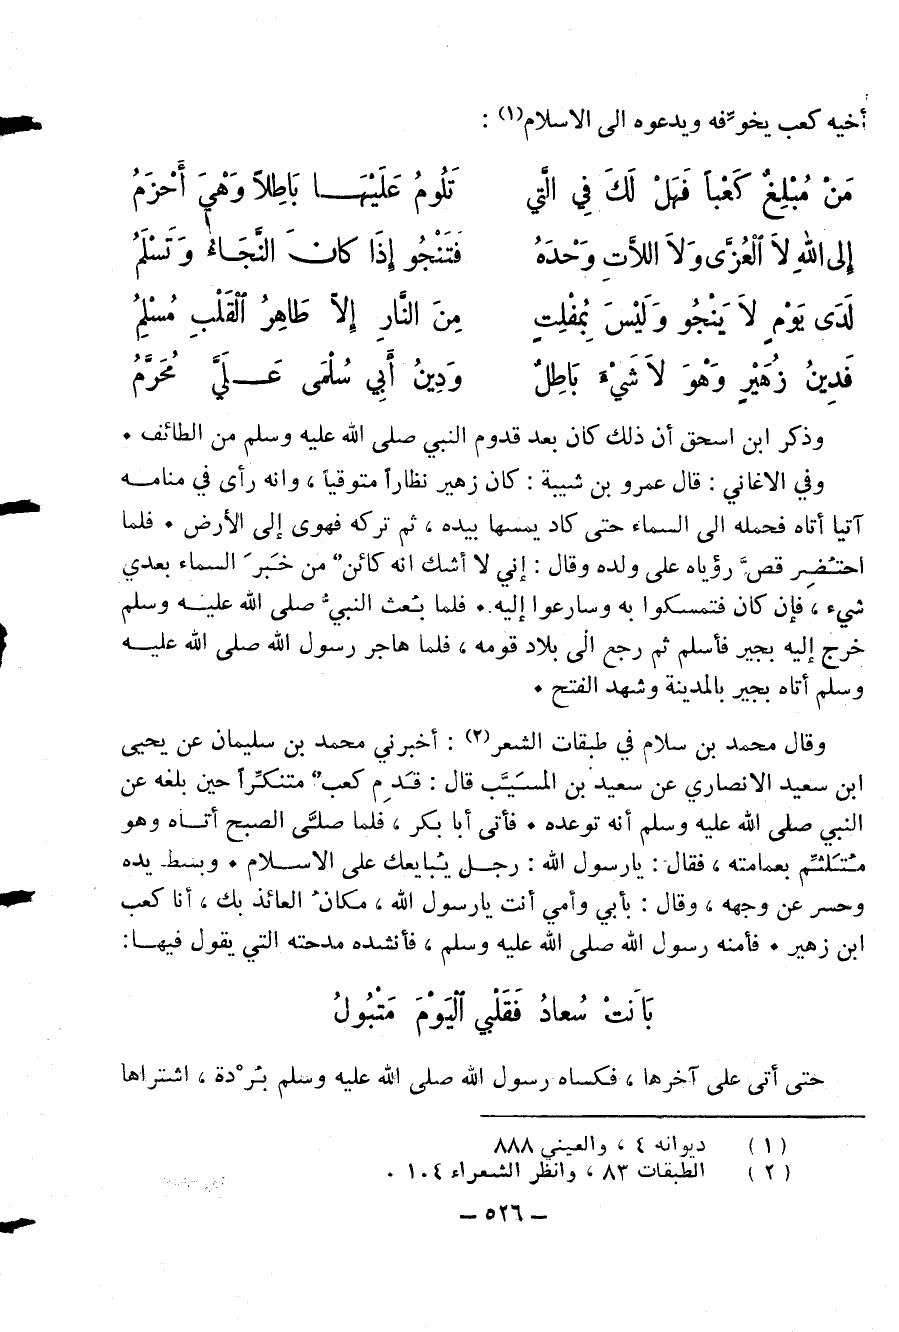 أخيه كعب يخوّفه ويدعوه الى الاسلام(١) :
مَنْ مُبْلِغٌ كَعْباً فَهَلْ لَكَ فِي الَّتِي تَلُومُ عَلَيْهَـــا بَاطِلاً وَهْيَ أَحْزَمُ
إِلى اللهِ لاَ الْعُزَّى وَلاَ اللاَّتِ وَحْدَهُ فَتَنْجُو إِذَا كَانَ النَّجَاءُ وَتَسْلَمُ
لَدَى يَوْمٍ لاَ يَنْجُو وَلَيْسَ بِمُفْلِتٍ مِنَ النَّارِ إِلاَّ طَاهِرُ الْقَلْبِ مُسْلِمُ
فَدِينُ زُهَيْرٍ وَهْوَ لاَ شَيْءَ بَاطِلٌ وَدِينُ أَبِي سُلْمَى عَـــلَيَّ مُحَرَّمُ
وذكر ابن اسحق أن ذلك كان بعد قدوم النبي صلى الله عليه وسلم من الطائف •
وفي الاغاني : قال عمرو بن شيبة : كان زهير نظاراً متوقياً ، وانه رأى في منامـه
آتيا أتاه فحمله الى السماء حتى كاد يمسها بيده ، ثم تركه فهوى إلى الأرض • فلما
احتُضِر قصَّ رؤياه على ولده وقال : إني لا أشك انه كائنٌ من خَبَرَ السماء بعدي
شيء ، فإن كان فتمسكوا به وسارعوا إليه • فلما بُعث النبيُّ صلى الله عليـه وسلم
خرج إليه بجير فأسلم ثم رجع الى بلاد قومه ، فلما هاجر رسول الله صلى الله عليـه
وسلم أتاه بجير بالمدينة وشهد الفتح •
وقال محمد بن سلام في طبقات الشعر(٢) : أخبرني محمد بن سليمان عن يحيى
ابن سعيد الانصاري عن سعيد بن المسَيَّب قال : قَدِم كعبٌ متنكِّراً حين بلغه عن
النبي صلى الله عليه وسلم أنه توعده • فأتى أبا بكر ، فلما صلَّى الصبح أتـاه وهو
مُتَلَثِّم بعمامته ، فقال : يارسول الله : رجـل يُبايعك على الاسـلام • وبسـط يده
وحسر عن وجهه ، وقال : بأبي وأمي أنت يارسول الله ، مكانُ العائذ بك ، أنا كعب
ابن زهير • فأمنه رسول الله صلى الله عليه وسلم ، فأنشده مدحته التي يقول فيهـا:
بَانَتْ سُعادُ فَقَلْبِي الْيَوْمَ مَتْبُولُ
حتى أتى على آخرها ، فكساه رسول الله صلى الله عليه وسلم بُرْدة ، اشتراها
(١) ديوانه ٤ ، والعيني ٨٨٨
(٢) الطبقات ٨٣ ، وانظر الشعراء ١٠٤ .
– ٥٢٦ –